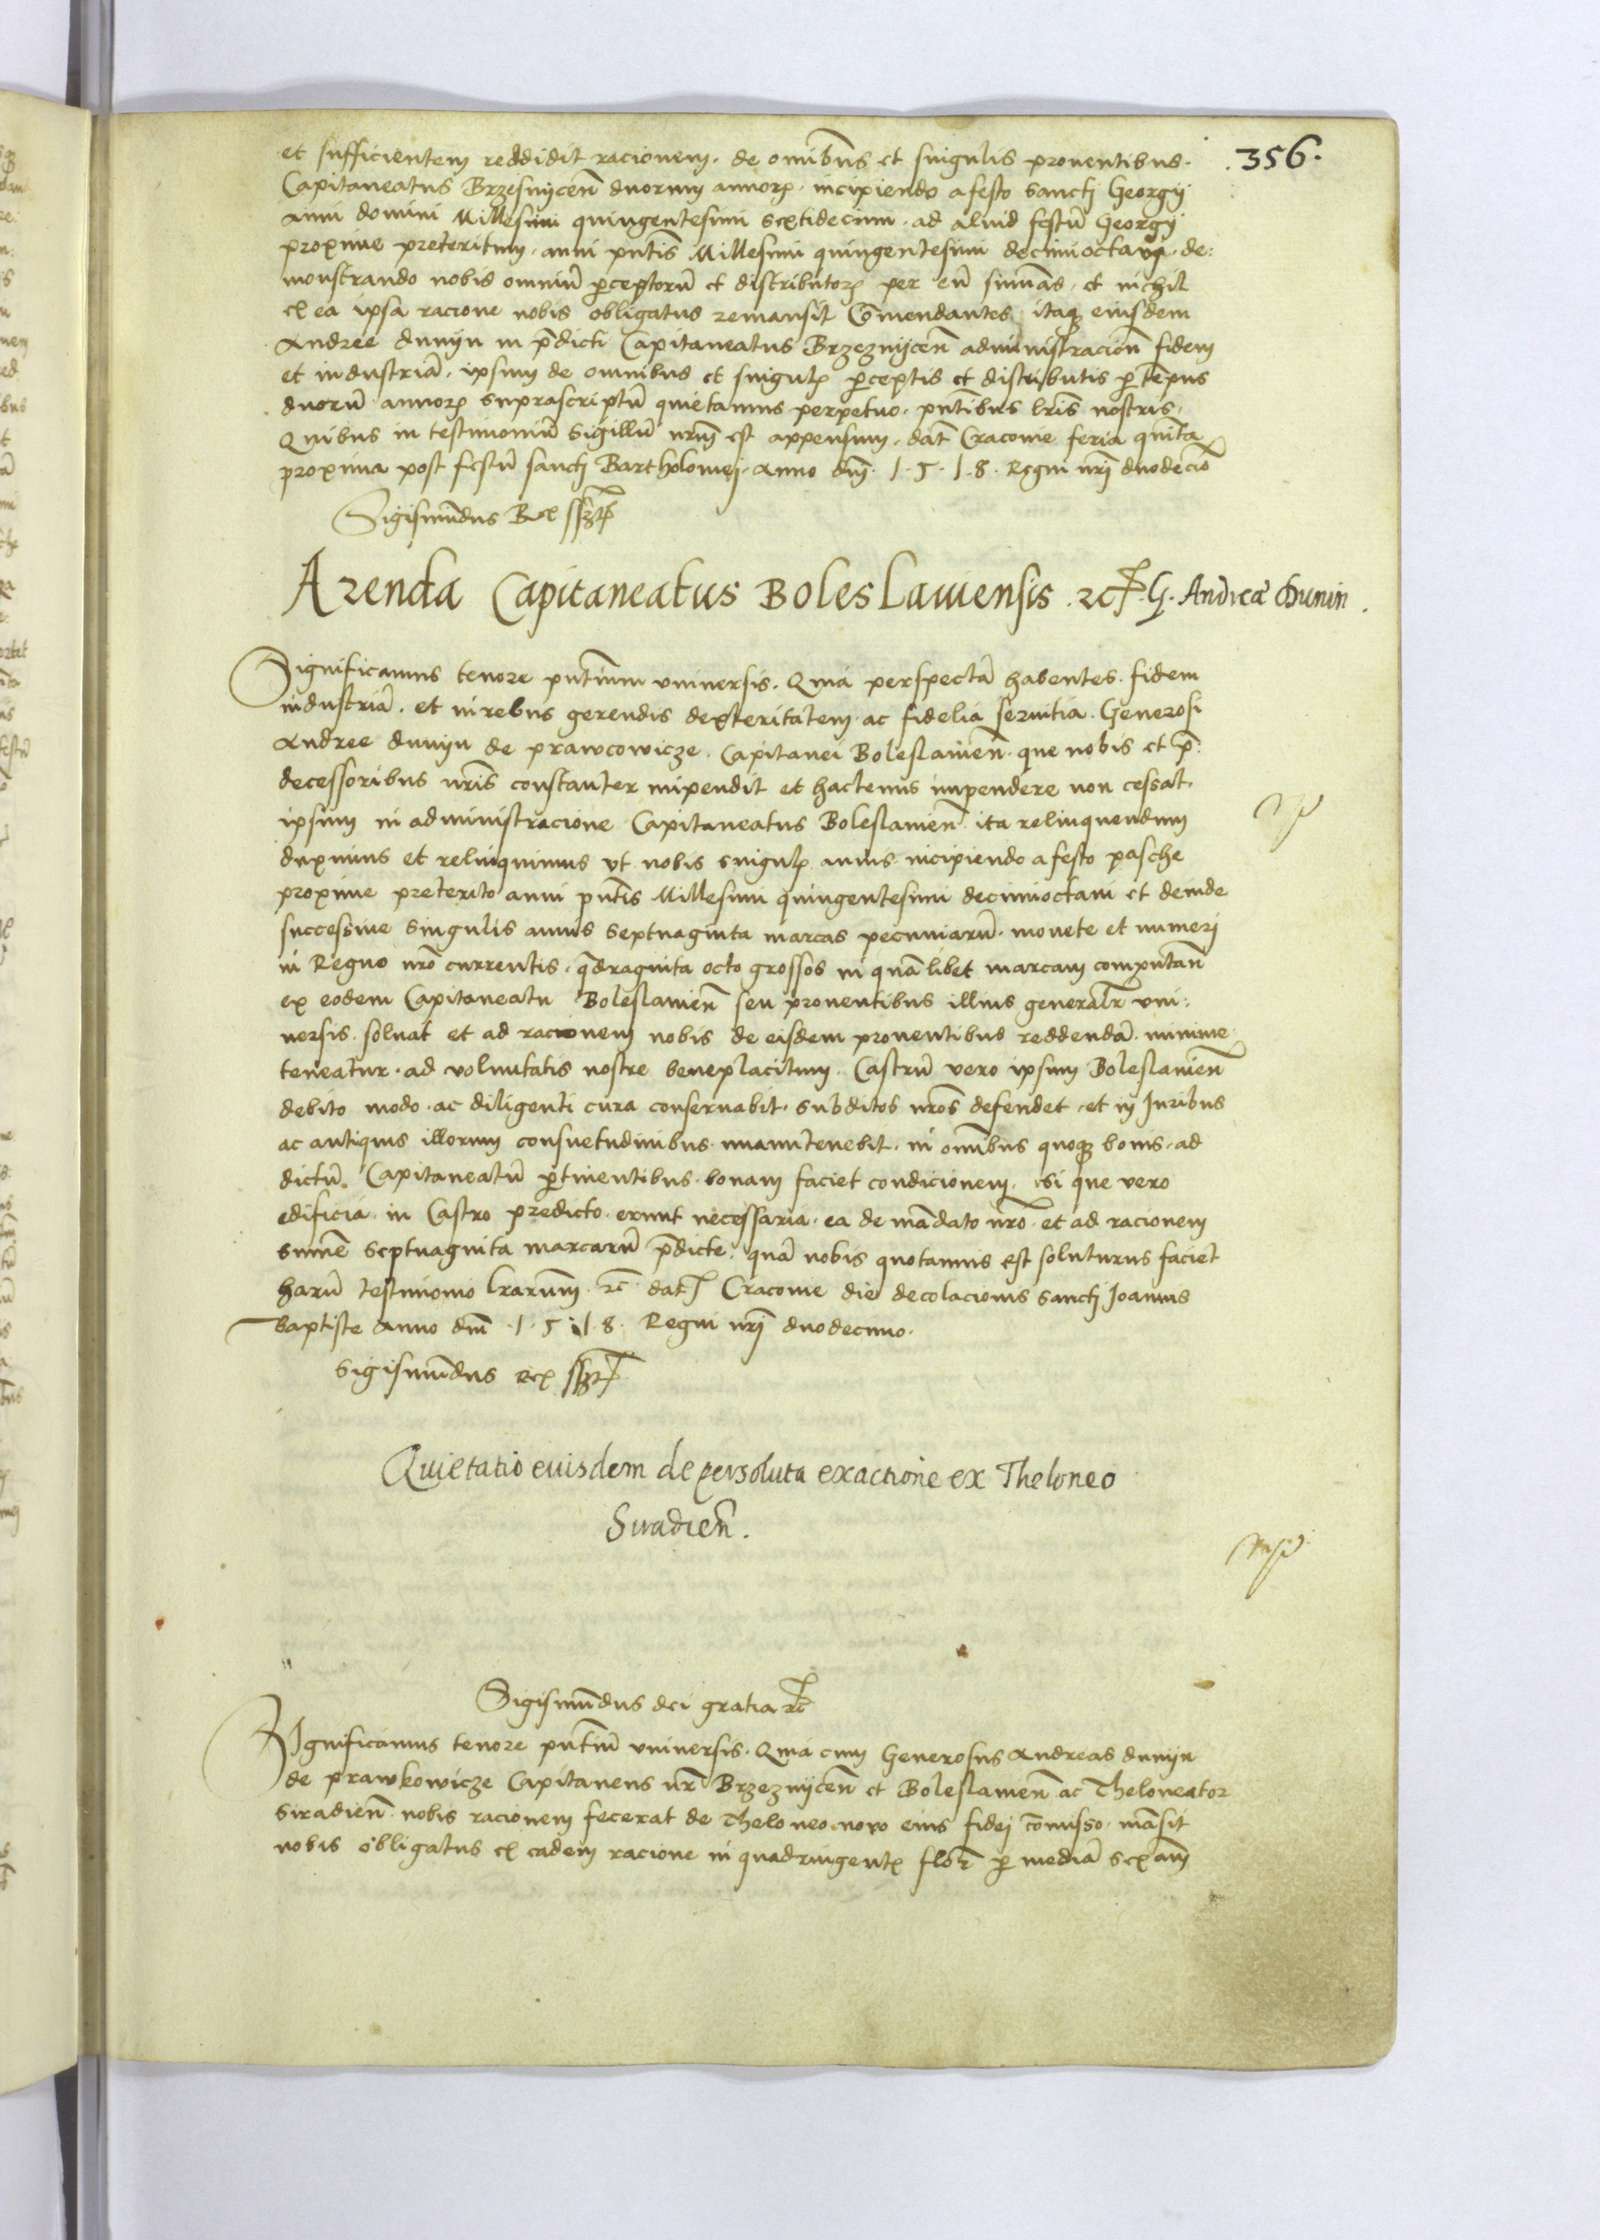 356.
et sufficientem reddidit racionem. de omībus et singulis prouentibus.
Capitaneatus Brzesnycen̄ duorum annorꝝ. incipiendo a festo Sancti Georgij
anni domini Millesimi quingentesimi sextidecimi. ad aliud festū Georgij
proxime preteritum. anni pn̄tis Millesimi quingentesimi decimioctaui. de:
monstrando nobis omniū ꝑceptorū et distributorꝝ per eū summas. et nichil
ex ea ipsa racione nobis obligatus remansit Comendantes itaqꝫ eiusdem
Andree dunyn in p̄dicti Capitaneatus Brzeznycen̄ administracion̄ fidem
et industriā. ipsum de omnibus et singulꝭ ꝑceptis et distributis ꝑ tempus
duorū annorꝝ suprascriptū quietamus perpetuo. pn̄tibus lr̄is nostris.
Quibus in testimoniū Sigillū nrū est appensum. dat̄ Cracouie feria quinta
proxima post festū sancti Bartholomei. Anno dn̄j 1.5.1.8. Regni nrj̄ duodecīo
Sigismūdus Rex sszt
Arenda Capitaneatus Boleslauiensis. 2c G. Andreæ Dunin.
Significamus tenore pn̄tium vniuersis. Quia perspectā habentes. fidem
industriā. et in rebus gerendis dexteritatem. ac fidelia seruitia. Generosi
Andree dunyn de prawcowicze. Capitanei Boleslauien̄. que nobis et p̄:
decessoribus nr̄is constanter impendit et hactenus impendere non cessat.
ipsum in administracione Capitaneatus Boleslauien̄ ita relinquendum
duximus et relinquimus vt nobis singulꝭ annis incipiendo a festo pasche
proxime preterito anni pn̄tis Millesimi quingentesimi decimioctaui et deinde
successiue singulis annis septuaginta marcas pecuniarū. monete et numerj
in Regno nrō currentis. q̄draginta octo grossos in quālibet marcam computan̄
ex eodem Capitaneatu Boleslauien̄ seu prouentibus illius generalr̄ vni:
uersis. soluat et ad racionem nobis de eisdem prouentibus reddendā. minime
teneatur. ad voluntatis nostre beneplacitum. Castrū vero ipsum Boleslauien̄
debito modo. ac diligenti cura conseruabit. subditos nrōs defendet. et in Juribus
ac antiquis illorum consuetudinibus. manutenebit. in omībus quoqꝫ bonis. ad
dictū. Capitaneatū ꝑtinentibus. bonam faciet condicionem. si que vero
edificia. in Castro predicto. erunt necessaria. ea de mādato nrō. et ad racionem
summe septuaginta marcarū p̄dicte. quā nobis quotannis est soluturus faciet
harū testimonio lrarum̄ 2c̄ dat Cracouie die decolacionis sancti Joannis
baptiste Anno dn̄j 1.5.1.8. Regni nrj̄ duodecimo.
Sigismūdus rex sszt
Quietatio eiusdem de persoluta exactione ex Theloneo
Siradien̄.
Sigismūdus dei gratia 2c̄
Significamus tenore pn̄tiū vniuersis. Quia cum Generosus Andreas dunyn
de prawkowicze Capitaneus nr̄ Brzeznycen̄ et Boleslauien̄ ac Theloneator
Siradien̄. nobis racionem fecerat de Theloneo nouo eius fidej com̄isso. māsit
nobis obligatus ex eadem racione in quadringentꝭ flor̄ ꝑ mediā sexam̄